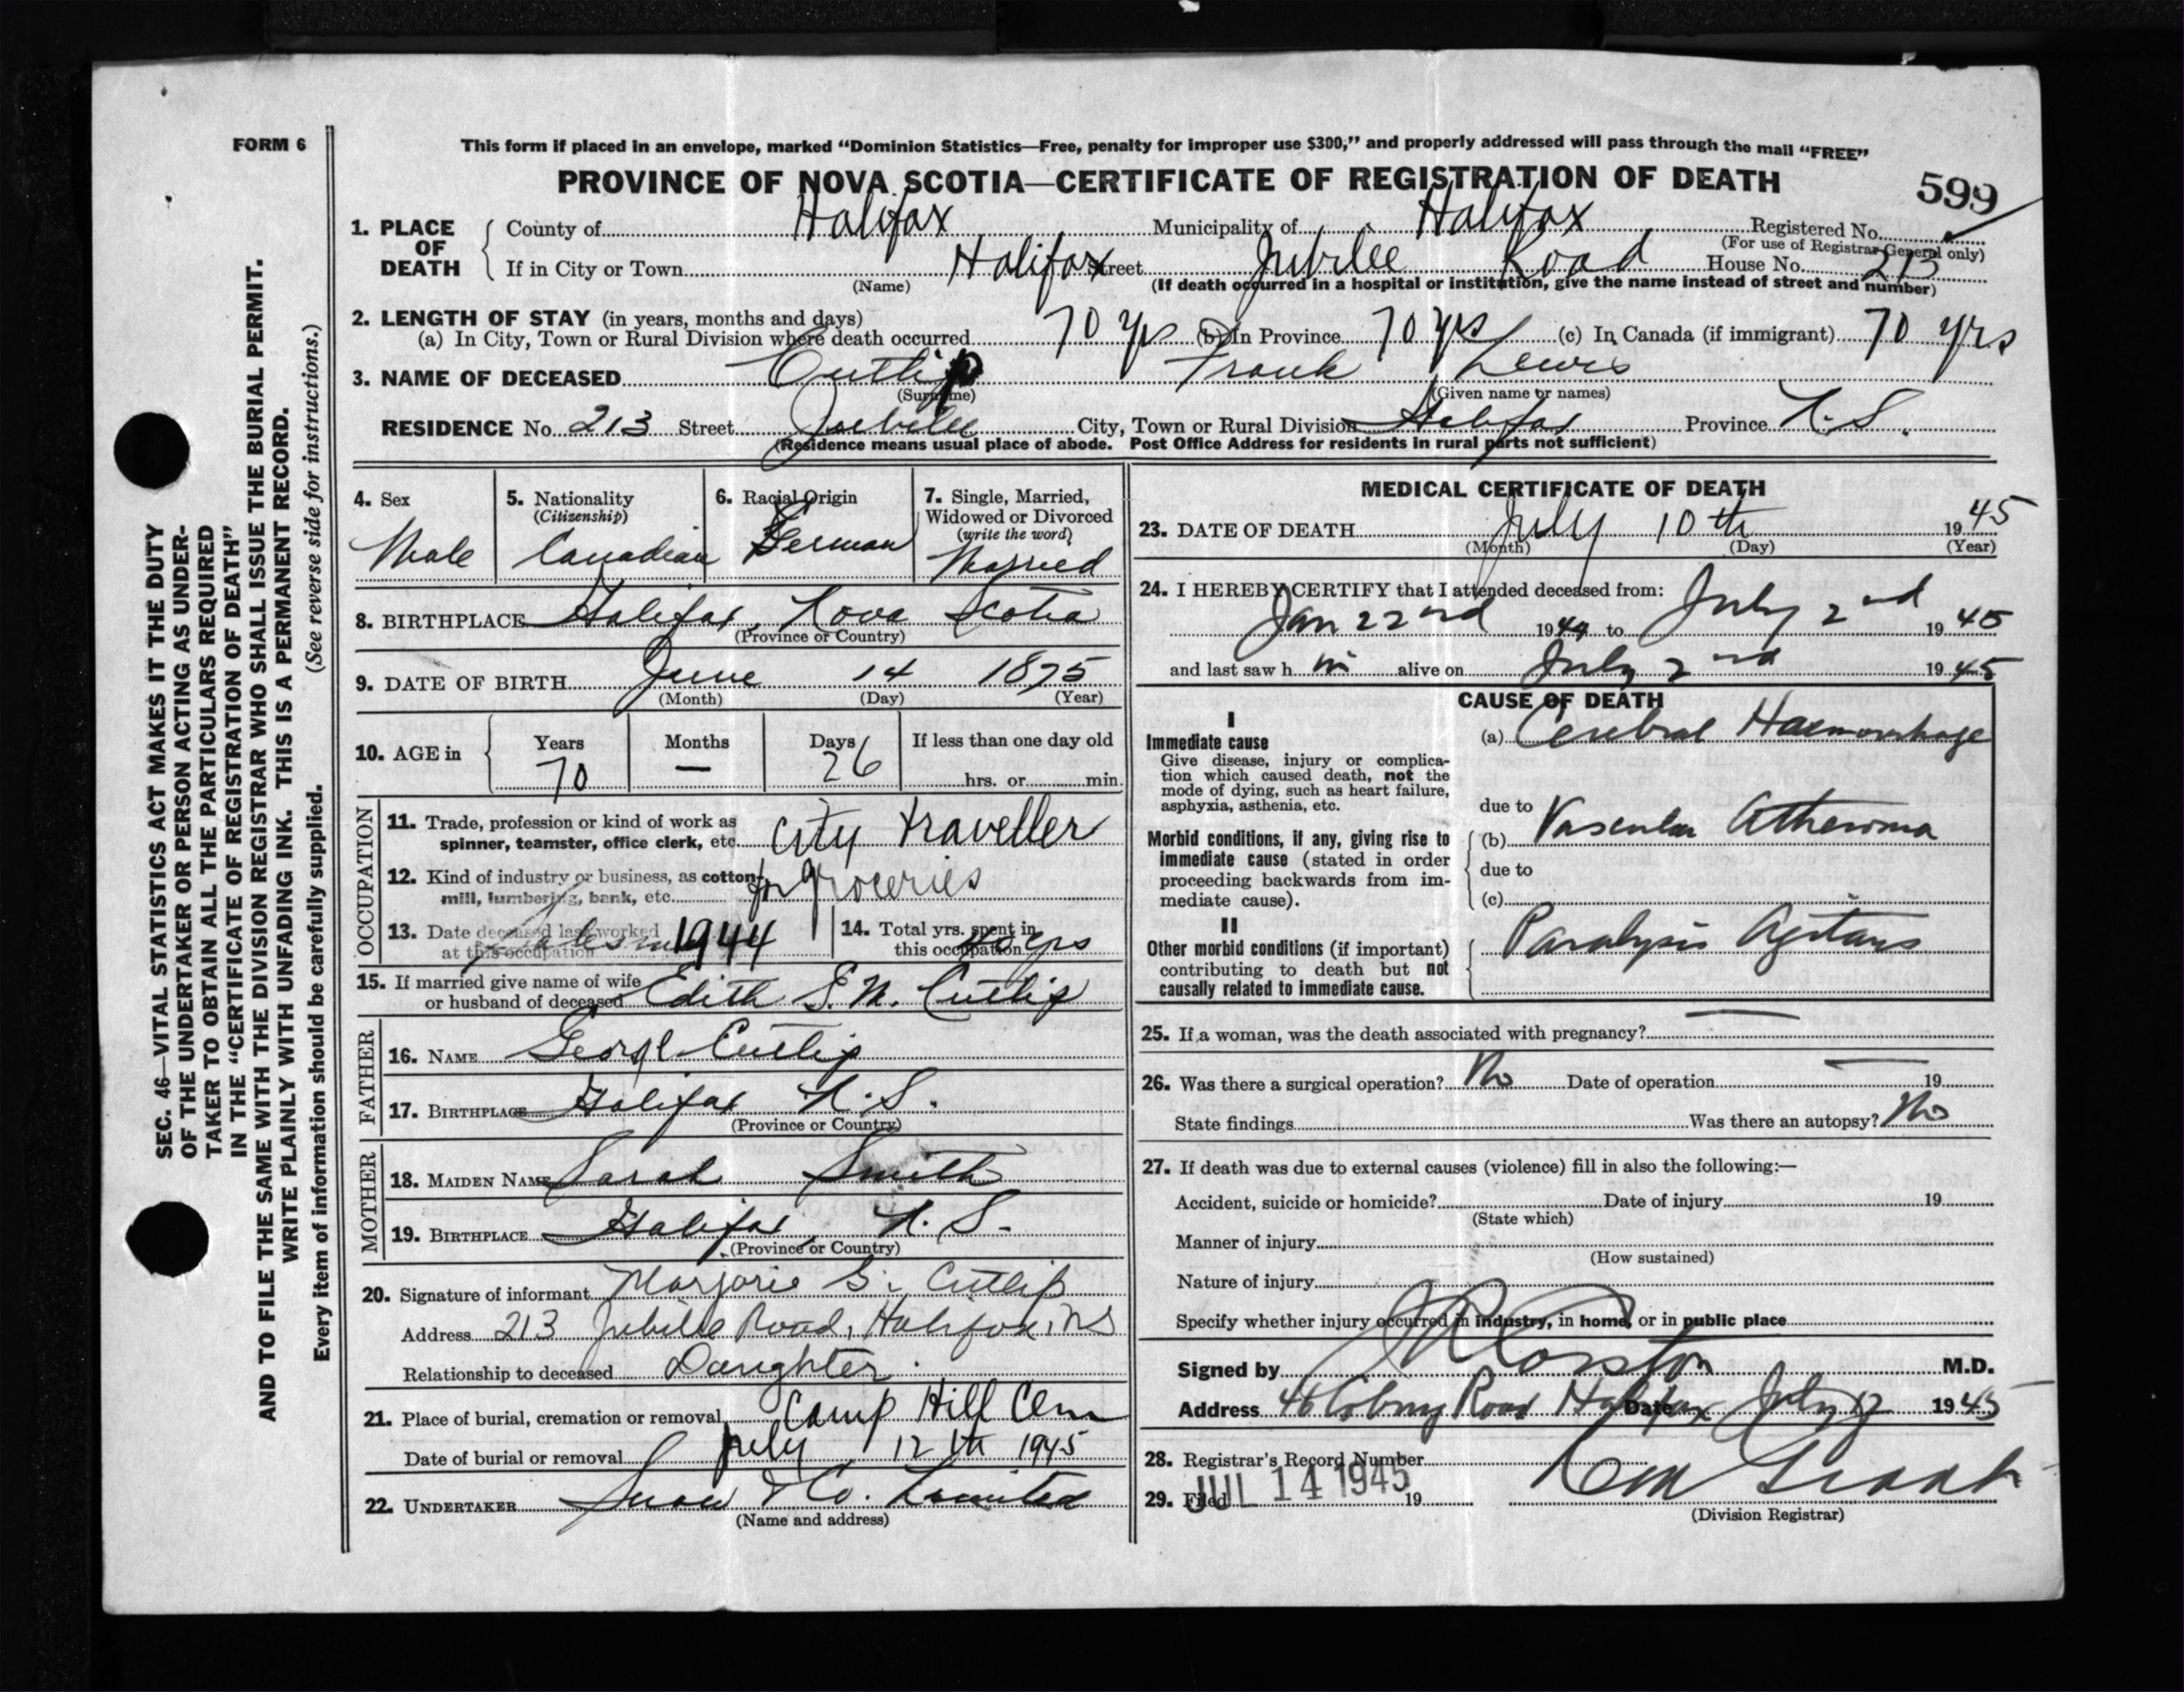 FORM 6
This form if placed in an envelope, marked "Dominion Statistics—Free, penalty for improper use $300," and properly addressed will pass through the mail "FREE"
PROVINCE OF NOVA SCOTIA—CERTIFICATE OF REGISTRATION OF DEATH
599
1. PLACE OF DEATH
County of Halifax Municipality of Halifax Registered No.
(For use of Registrar General only)
If in City or Town Halifax Street Jubilee Road House No. 213
(Name) (If death occurred in a hospital or institution, give the name instead of street and number)
2. LENGTH OF STAY (in years, months and days)
(a) In City, Town or Rural Division where death occurred 70 yrs (b) In Province 70 yrs (c) In Canada (if immigrant) 70 yrs
3. NAME OF DECEASED Cutlip Frank Lewis
(Surname) (Given name or names)
RESIDENCE No. 213 Street Jubilee City, Town or Rural Division Halifax Province N.S.
(Residence means usual place of abode. Post Office Address for residents in rural parts not sufficient)
4. Sex
Male
5. Nationality
(Citizenship)
Canadian
6. Racial Origin
German
7. Single, Married,
Widowed or Divorced
(write the word)
Married
8. BIRTHPLACE Halifax, Nova Scotia
(Province or Country)
9. DATE OF BIRTH June 14 1875
(Month) (Day) (Year)
10. AGE in Years Months Days If less than one day old
70 — 26 hrs. or min.
OCCUPATION
11. Trade, profession or kind of work as
spinner, teamster, office clerk, etc. City traveller
12. Kind of industry or business, as cotton
mill, lumbering, bank, etc. for groceries
13. Date deceased last worked
at this occupation 1944
14. Total yrs. spent in
this occupation yrs
15. If married give name of wife
or husband of deceased Edith S. M. Cutlip
FATHER
16. NAME George Cutlip
17. BIRTHPLACE Halifax N.S.
(Province or Country)
MOTHER
18. MAIDEN NAME Sarah Smith
19. BIRTHPLACE Halifax, N.S.
(Province or Country)
20. Signature of informant Marjorie G. Cutlip
Address 213 Jubilee Road, Halifax, NS
Relationship to deceased Daughter.
21. Place of burial, cremation or removal Camp Hill Cem
Date of burial or removal July 12th 1945
22. UNDERTAKER Snow & Co. Limited
(Name and address)
MEDICAL CERTIFICATE OF DEATH
23. DATE OF DEATH July 10th 1945
(Month) (Day) (Year)
24. I HEREBY CERTIFY that I attended deceased from:
Jan 22nd 1944 to July 2nd 1945
and last saw h im alive on July 2nd 1945
CAUSE OF DEATH
I
Immediate cause
Give disease, injury or complica-
tion which caused death, not the
mode of dying, such as heart failure,
asphyxia, asthenia, etc.
(a) Cerebral Haemorrhage
due to
Morbid conditions, if any, giving rise to
immediate cause (stated in order
proceeding backwards from im-
mediate cause).
(b) Vascular Atheroma
due to
(c)
II
Other morbid conditions (if important)
contributing to death but not
causally related to immediate cause.
Paralysis Agitans
25. If a woman, was the death associated with pregnancy? —
26. Was there a surgical operation? No Date of operation — 19
State findings Was there an autopsy? No
27. If death was due to external causes (violence) fill in also the following:—
Accident, suicide or homicide? Date of injury 19
(State which)
Manner of injury
(How sustained)
Nature of injury
Specify whether injury occurred in industry, in home, or in public place
Signed by Corston M.D.
Address 46 Coburg Road Halifax Date July 12 1945
28. Registrar's Record Number
29. Filed JUL 14 1945 19
(Division Registrar)
SEC. 46—VITAL STATISTICS ACT MAKES IT THE DUTY
OF THE UNDERTAKER OR PERSON ACTING AS UNDER-
TAKER TO OBTAIN ALL THE PARTICULARS REQUIRED
IN THE "CERTIFICATE OF REGISTRATION OF DEATH"
AND TO FILE THE SAME WITH THE DIVISION REGISTRAR WHO SHALL ISSUE THE BURIAL PERMIT.
WRITE PLAINLY WITH UNFADING INK. THIS IS A PERMANENT RECORD.
Every item of information should be carefully supplied. (See reverse side for instructions.)